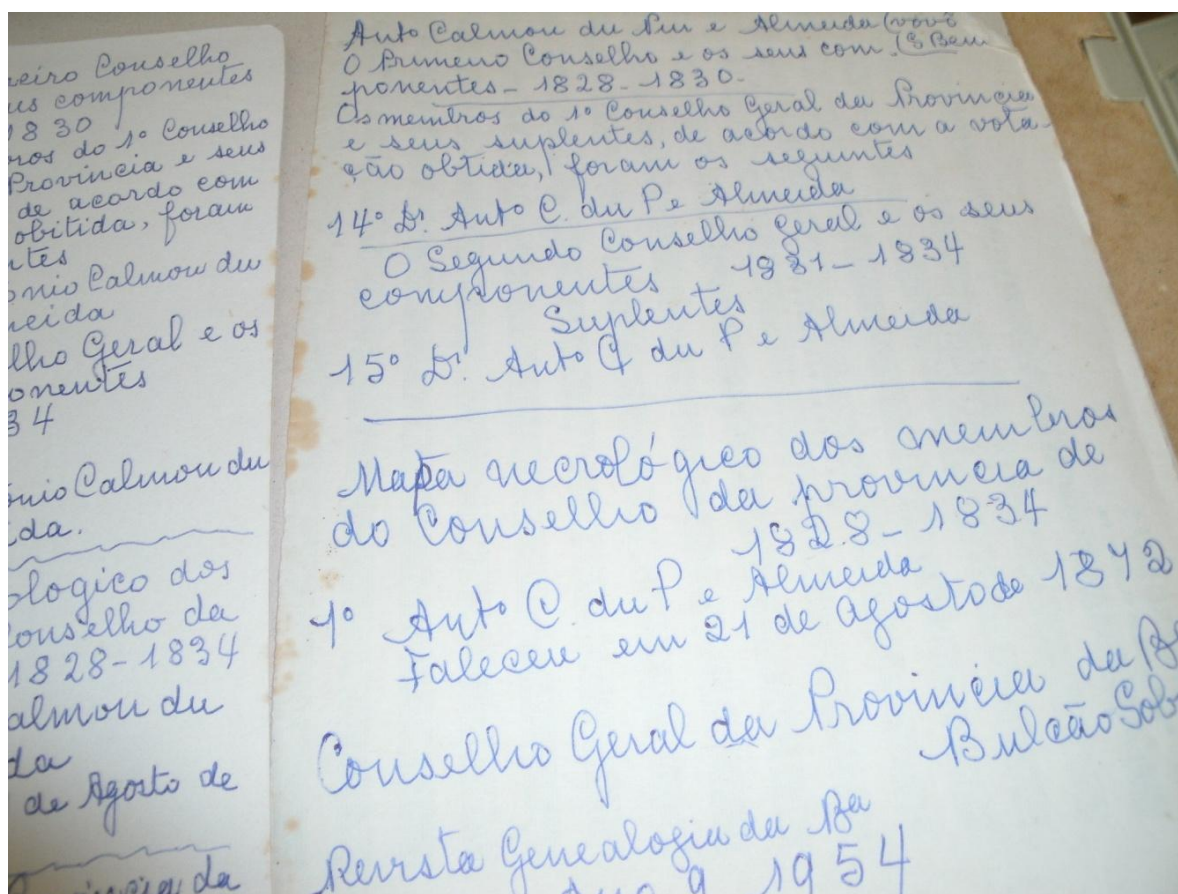 eiro Conselho
us componentes
1830
ros do 1º Conselho
Provincia e seus
de acordo com
obitida, foram
ntes
onio Calmon du
eida
lho Geral e os
onentes
34
onio Calmon du
ida.
ologico dos
Conselho da
1828-1834
almon du
da
de Agosto de
da
Antº Calmon du Pin e Almeida (vovô
O Primeiro Conselho e os seus com (S Bem
ponentes - 1828 - 1830.
Os membros do 1º Conselho Geral da Provincia
e seus suplentes, de acordo com a vota-
ção obtida, foram os seguintes
14º Dr. Antº C. du P e Almeida
O Segundo Conselho Geral e os seus
componentes 1831 - 1834
Suplentes
15º Dr. Antº C du P e Almeida
Mapa necrológico dos membros
do Conselho da provincia de
1828 - 1834
1º Antº C. du P e Almeida
Faleceu em 21 de Agosto de 1872
Conselho Geral da Provincia da Ba
Bulcão Sob
Revista Genealogia da Ba
Ano 9 1954